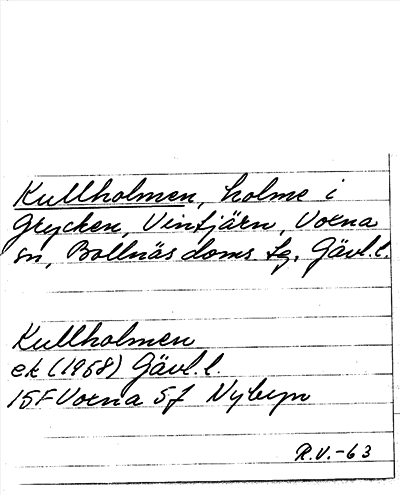 Kullholmen, holme i
Grycken, Vintjärn, Voxna
sn, Bollnäs doms tg, Gävl.l.
Kullholmen
ek (1958) Gävl.l.
15F Voxna 5f Nybyn
R.V.-63